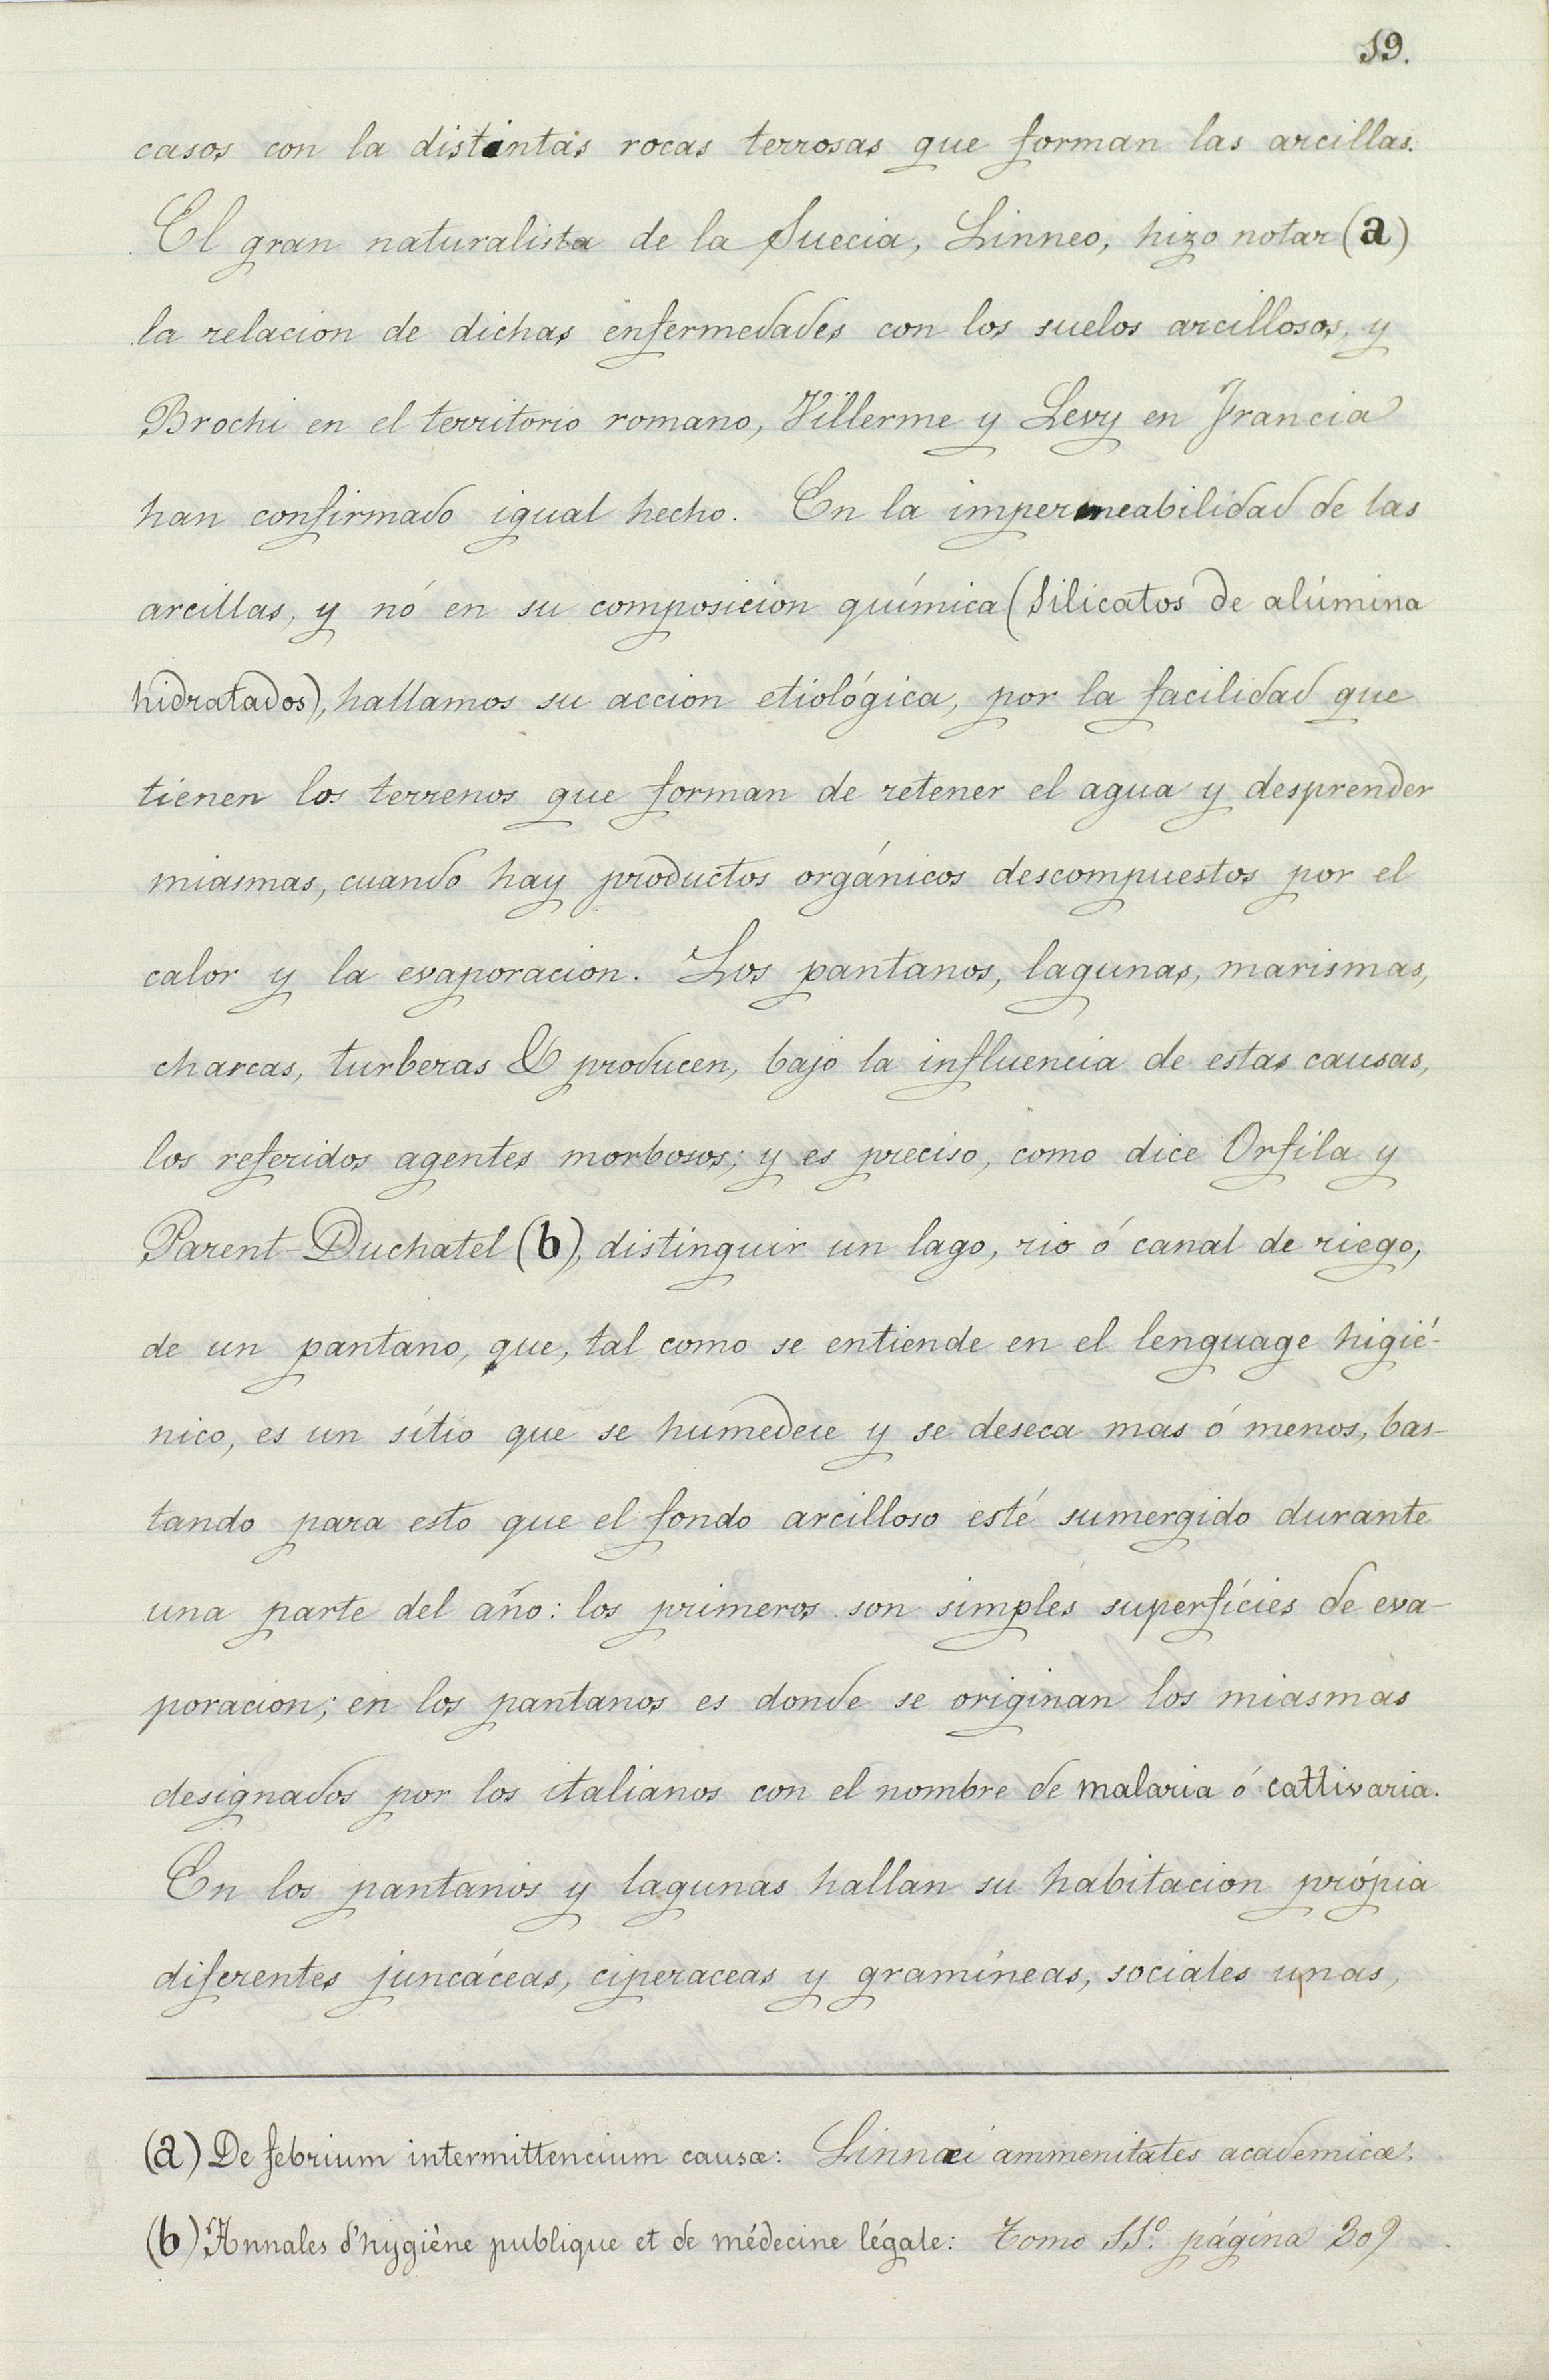 19.
casos con la distintas rocas terrosas que forman las arcillas.
El gran naturalista de la Suecia, Linneo, hizo notar (a)
la relacion de dichas enfermedades con los suelos arcillosos, y
Brochi en el territorio romano, Villerme y Levy en Francia
han confirmado igual hecho. En la impermeabilidad de las
arcillas, y nó en su composicion química (Silicatos de alúmina
hidratados), hallamos su accion etiológica, por la facilidad que
tienen los terrenos que forman de retener el agua y desprender
miasmas, cuando hay productos orgánicos descompuestos por el
calor y la evaporacion. Los pantanos, lagunas, marismas,
charcas, turberas & producen, bajo la influencia de estas causas,
los referidos agentes morbosos; y es preciso, como dice Orfila y
Parent-Duchatel (b), distinguir un lago, rio ó canal de riego,
de un pantano, que, tal como se entiende en el lenguage higié-
nico, es un sítio que se humedece y se deseca mas ó menos, bas-
tando para esto que el fondo arcilloso esté sumergido durante
una parte del año: los primeros son simples superfícies de eva-
poracion; en los pantanos es donde se originan los miasmas
designados por los italianos con el nombre de malaria ó cattivaria.
En los pantanos y lagunas hallan su habitacion própia
diferentes juncáceas, ciperaceas y gramíneas, sociales unas,
(a) De febrium intermittencium causæ: Linnæi ammenitates academicæ.
(b) Annales d'hygiène publique et de médecine légale: Tomo 11º. página 309